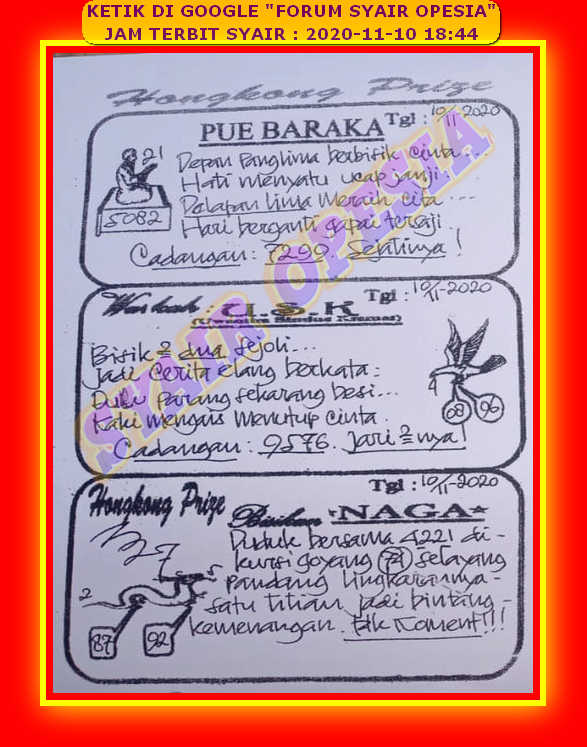 KETIK DI GOOGLE "FORUM SYAIR OPESIA"
JAM TERBIT SYAIR : 2020-11-10 18:44
Hongkong Prize
Tgl : 10/11 2020
PUE BARAKA
21
5082
Depan Panglima berbisik cinta...
Hati menyatu ucap janji.
Delapan lima meraih cita...
Hari berganti gapai tersaji
Cadangan: 7299. Sejatinya!
SYAIR OPESIA
Tgl : 10/11-2020
U.S.K
Bisik2 dua sejoli...
Jadi cerita elang berkata:
Dulu parang sekarang besi...
Kaki mengais menutup cinta.
Cadangan: 9576. Jari2nya!
68 96
Tgl : 10/11-2020
Hongkong Prize
Bisikan *NAGA*
Duduk bersama 4221 di-
kursi goyang 74 selayang
pandang lingkarannya-
satu titian jadi bintang-
kemenangan. Koment!!!
5
2
87 92